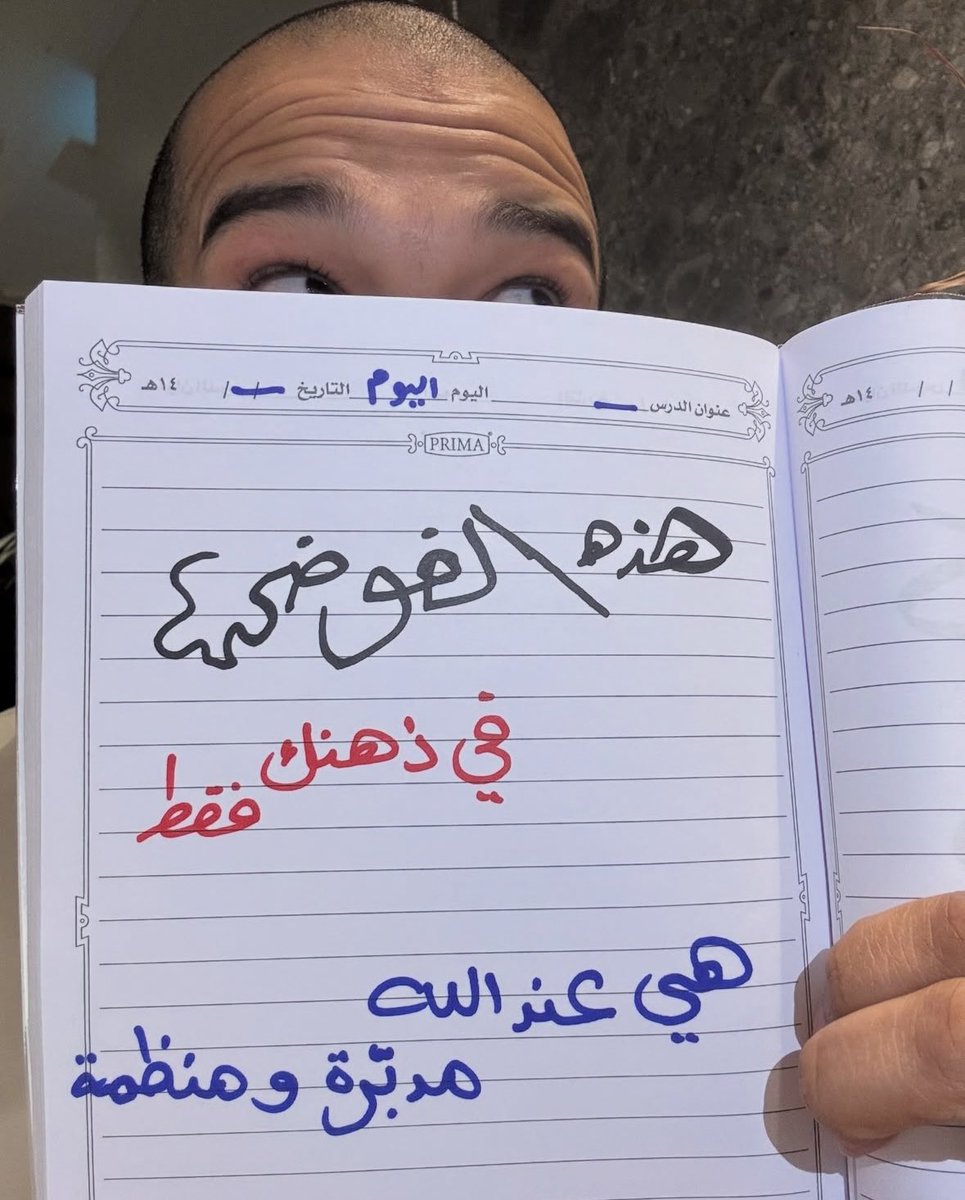 عنوان الدرس — اليوم اليوم التاريخ — / / ١٤هـ
/ / ١٤هـ
PRIMA
هذه الفوضى
في ذهنك
فقط
هي عند الله
مدبّرة و منظمة